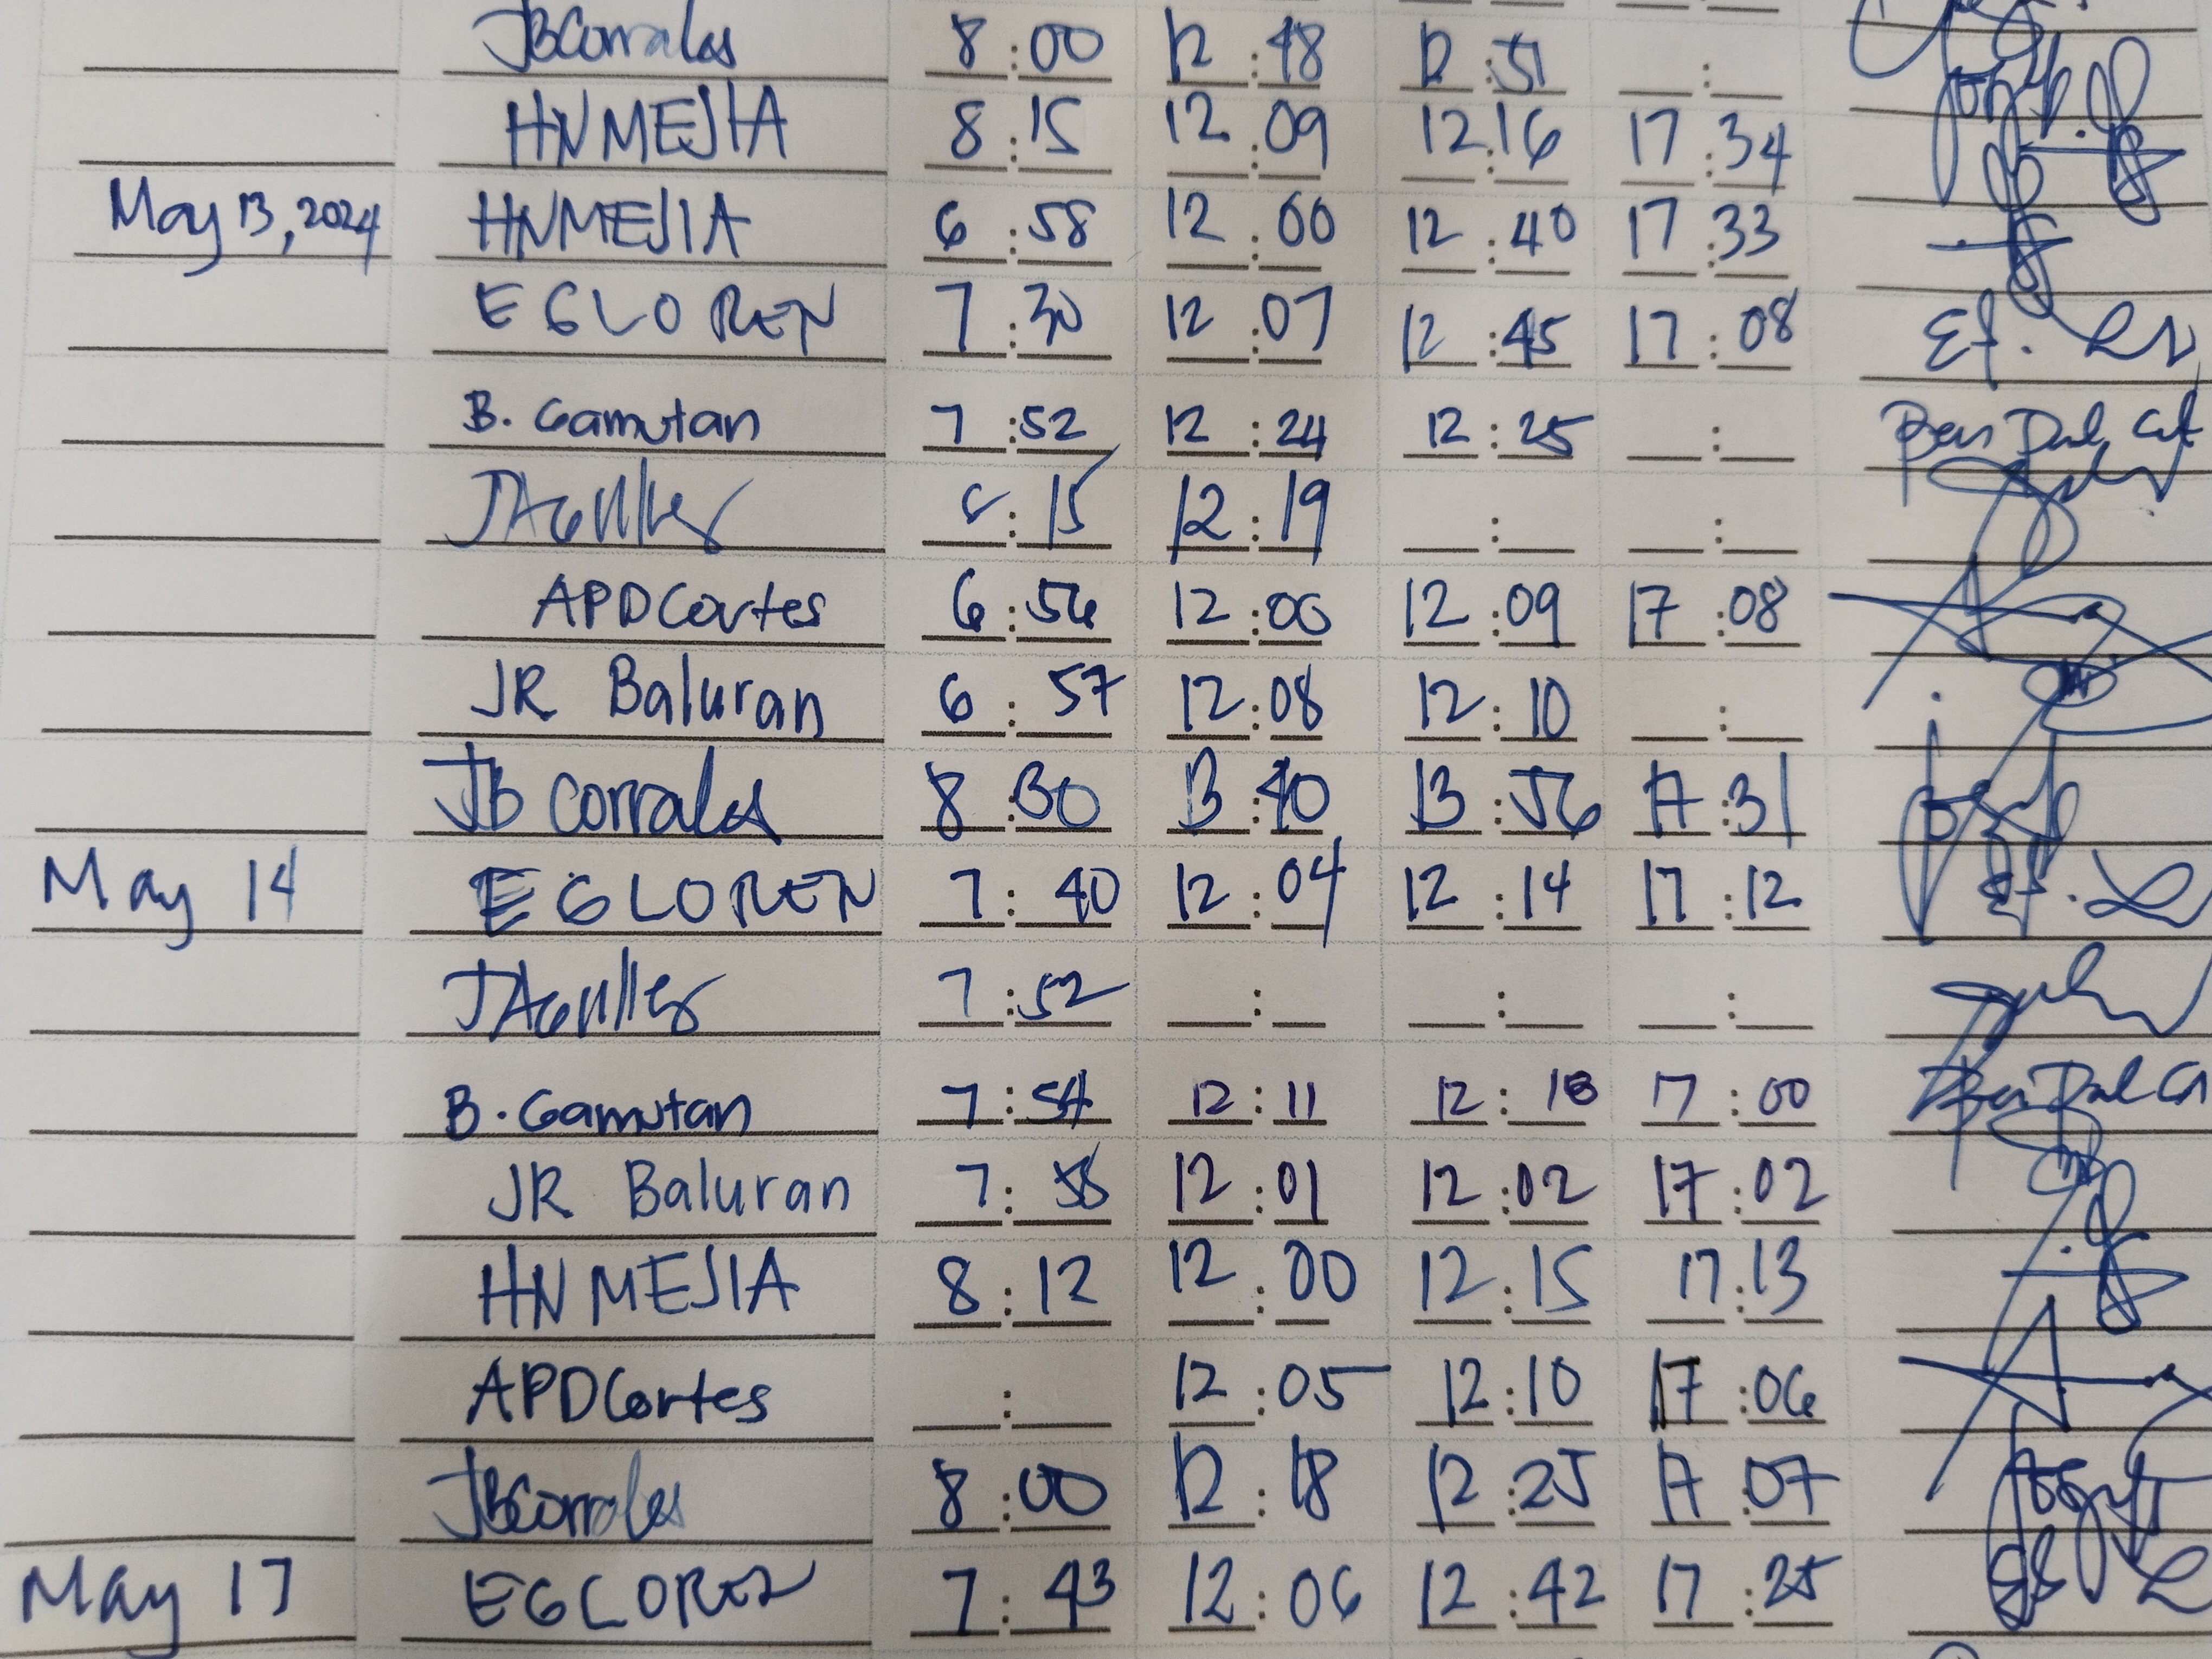 JBCorrales 8:00 12:48 12:51 :
HNMEJIA 8:15 12:09 12:16 17:34
May 13, 2024 HNMEJIA 6:58 12:00 12:40 17:33
EGLOREN 7:30 12:07 12:45 17:08
B. Gamutan 7:52 12:24 12:25 :
:15 12:19 : :
APDCortes 6:56 12:00 12:09 17:08
JR Baluran 6:57 12:08 12:10 :
JB Corrales 8:30 13:40 13:56 17:31
May 14 EGLOREN 7:40 12:04 12:14 17:12
7:52 : : :
B. Gamutan 7:54 12:11 12:18 17:00
JR Baluran 7:55 12:01 12:02 17:02
HNMEJIA 8:12 12:00 12:15 17:13
APDCortes : 12:05 12:10 17:06
JBCorrales 8:00 12:18 12:25 17:07
May 17 EGLOREN 7:43 12:06 12:42 17:25